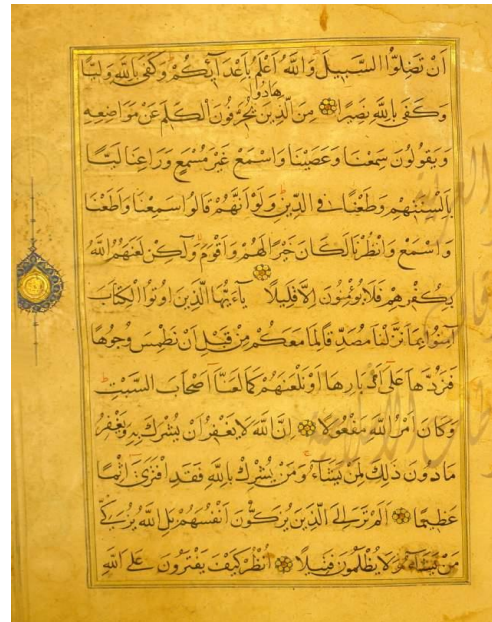 اَنْ تَضِلُّوا السَّبِيلَ وَاللّٰهُ اَعْلَمُ بِاَعْدَآئِكُمْ وَكَفٰى بِاللّٰهِ وَلِيًّا
هادوا
وَكَفٰى بِاللّٰهِ نَصِيرًا مِنَ الَّذِينَ يُحَرِّفُونَ الْكَلِمَ عَنْ مَوَاضِعِهِ
وَيَقُولُونَ سَمِعْنَا وَعَصَيْنَا وَاسْمَعْ غَيْرَ مُسْمَعٍ وَرَاعِنَا لَيًّا
بِاَلْسِنَتِهِمْ وَطَعْنًا فِي الدِّينِ وَلَوْ اَنَّهُمْ قَالُوا سَمِعْنَا وَاَطَعْنَا
وَاسْمَعْ وَانْظُرْنَا لَكَانَ خَيْرًا لَهُمْ وَاَقْوَمَ وَلٰكِنْ لَعَنَهُمُ اللّٰهُ
بِكُفْرِهِمْ فَلَا يُؤْمِنُونَ اِلَّا قَلِيلًا يَآءَيُّهَا الَّذِينَ اُوتُوا الْكِتَابَ
آمِنُوا بِمَا نَزَّلْنَا مُصَدِّقًا لِمَا مَعَكُمْ مِنْ قَبْلِ اَنْ نَطْمِسَ وُجُوهًا
فَنَرُدَّهَا عَلٰى اَدْبَارِهَا اَوْ نَلْعَنَهُمْ كَمَا لَعَنَّا اَصْحَابَ السَّبْتِ
وَكَانَ اَمْرُ اللّٰهِ مَفْعُولًا اِنَّ اللّٰهَ لَا يَغْفِرُ اَنْ يُشْرَكَ بِهِ وَيَغْفِرُ
مَا دُونَ ذٰلِكَ لِمَنْ يَشَآءُ وَمَنْ يُشْرِكْ بِاللّٰهِ فَقَدِ افْتَرٰى اِثْمًا
عَظِيمًا اَلَمْ تَرَ اِلَى الَّذِينَ يُزَكُّونَ اَنْفُسَهُمْ بَلِ اللّٰهُ يُزَكِّي
مَنْ يَشَآءُ وَلَا يُظْلَمُونَ فَتِيلًا اُنْظُرْ كَيْفَ يَفْتَرُونَ عَلَى اللّٰهِ